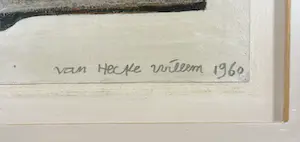 van Hecke Willem 1960